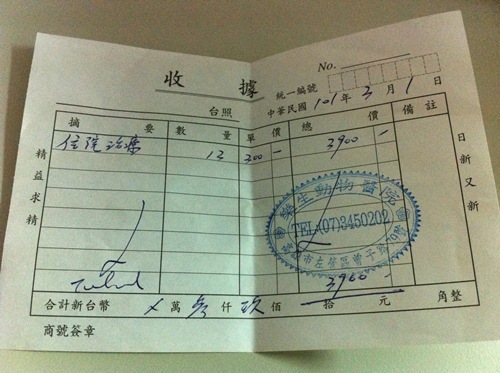 No.
收 據
統一編號
台照 中華民國 101 年 3 月 1 日
摘 要 數 量 單 價 總 價 備 註
住院治療 13 300 - 3900 -
精益求精
日新又新
樂生動物醫院
TEL:(07)3450202
市左營區曾子路
3900 -
合計新台幣 × 萬 參 仟 玖 佰 拾 元 角整
商號簽章